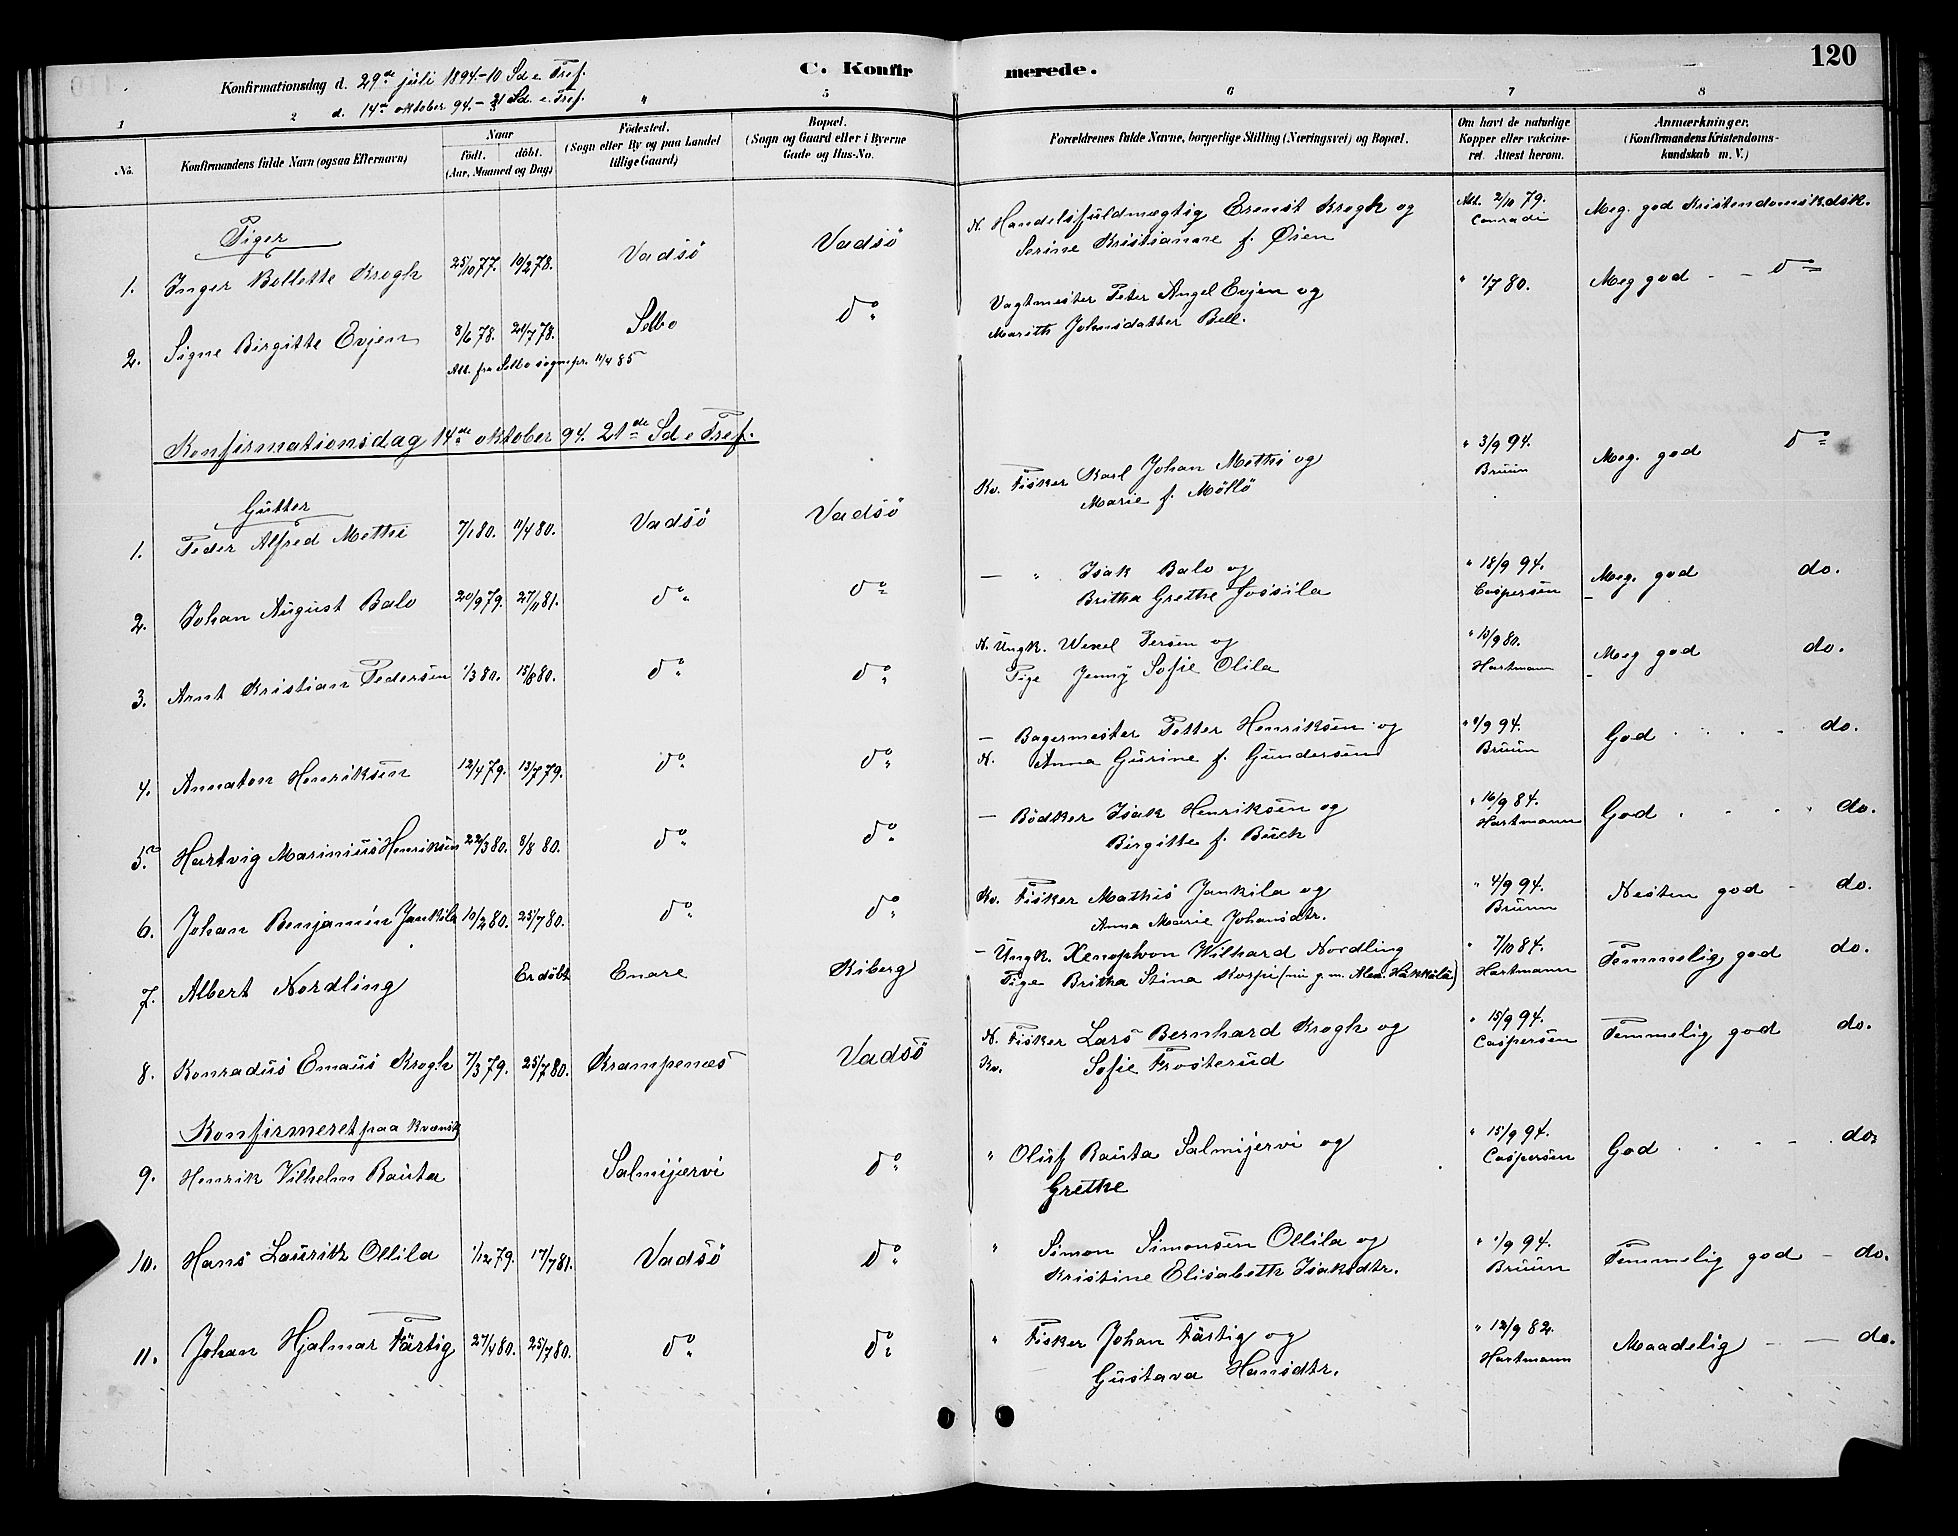 120
C. Konfirmerede.
Konfirmationsdag d. 29de juli 1894.-10 Sd e Tref.
d. 14de oktober 94.- 21 Sd. e. Tref.
1 2 3 4 5 6 7 8
No. Konfirmandens fulde Navn (ogsaa Efternavn)
Naar
født. döbt.
(Aar, Maaned og Dag)
Födested.
(Sogn eller By og paa Landet
tillige Gaard)
Bopæl.
(Sogn og Gaard eller i Byerne
Gade og Hus-No.
Forældrenes fulde Navne, borgerlige Stilling (Næringsvei) og Bopæl.
Om havt de naturlige
Kopper eller vakcine-
ret. Attest herom.
Anmærkninger.
(Konfirmandens Kristendoms-
kundskab m. V.)
Piger
1. Inger Bollette Krogh 25/10 77. 10/2 78. Vadsö Vadsö N. Handelsfuldmægtig Erenst Krogh og Att. 2/10 79. Meg. god Kristendomskdsk.
Serine Kristianane f. Øien Conradi
2. Signe Birgitte Evjen 8/6 78. 20/7 78. Selbo do Vagtmester Peter Angel Evjen og " 1/7 80. Meg god - - do
Marith Johnsdatter Bell.
Att. fra Selbo sognepr. 11/4 85
Konfirmationsdag 14de oktober 94. 21de Sd e Tref.
Gutter
1. Peder Alfred Methi 7/1 80. 11/4 80. Vadsö Vadsö Kv. Fisker Karl Johan Methi og " 3/9 94. Meg. god do
Marie f. Möllö Bruun
2. Johan August Balo 20/9 79. 27/11 81. do do — " Isak Balo og " 18/9 94. Meg. god do.
Britha Grethe Jossila Caspersen
3. Arnt Kristian Pedersen 1/3 80. 15/8 80. do do N. Ungk. Wexel Persen og " 13/9 80. Meg god do.
Pige Jenny Sofie Olila Hartmann
4. Annaton Henriksen 12/4 79. 13/7 79. do do — Bagermester Petter Henriksen og " 1/9 94. God do.
N. Anna Gurine f. Gundersen Bruun
5. Hartvig Marinius Henriksen 22/3 80. 8/8 80. do do — Bödker Isak Henriksen og " 16/9 84. God do.
Birgitte f. Buck Hartmann
6. Johan Benjamin Jankila 10/2 80. 25/7 80. do do Kv. Fisker Mathis Jankila og " 4/9 94. Nesten god - do.
Anna Marie Johansdtr. Bruun
7. Albert Nordling Er döbt Enare Kiberg — Ungk. Xenophon Wilhard Nordling " 7/10 84. Temmelig god do.
Pige Britha Stina Kospi (nu g. m. Alex. Hakkila) Hartmann
8. Konradus Emaus Krogh 7/3 79. 25/7 80. Krampenæs Vadsö N. Fisker Lars Bernhard Krogh og " 15/9 94. Temmelig god do.
Kv. Sofie Frosterud Caspersen
Konfirmeret paa kvænsk
9. Henrik Vilhelm Rauta Salmijervi do " Oluf Rauta Salmijervi og " 15/9 94. God do.
Grethe Caspersen
10. Hans Lauritz Ollila 1/12 79. 17/7 81. Vadsö do " Simon Simonsen Ollila og " 1/9 94. Temmelig god - do.
Kristine Elisabeth Isaksdtr. Bruun
11. Johan Hjalmar Färtig 27/4 80. 25/7 80. do do " Fisker Johan Färtig og " 12/9 82. Maadelig - — do.
Gustava Hansdtr. Hartmann